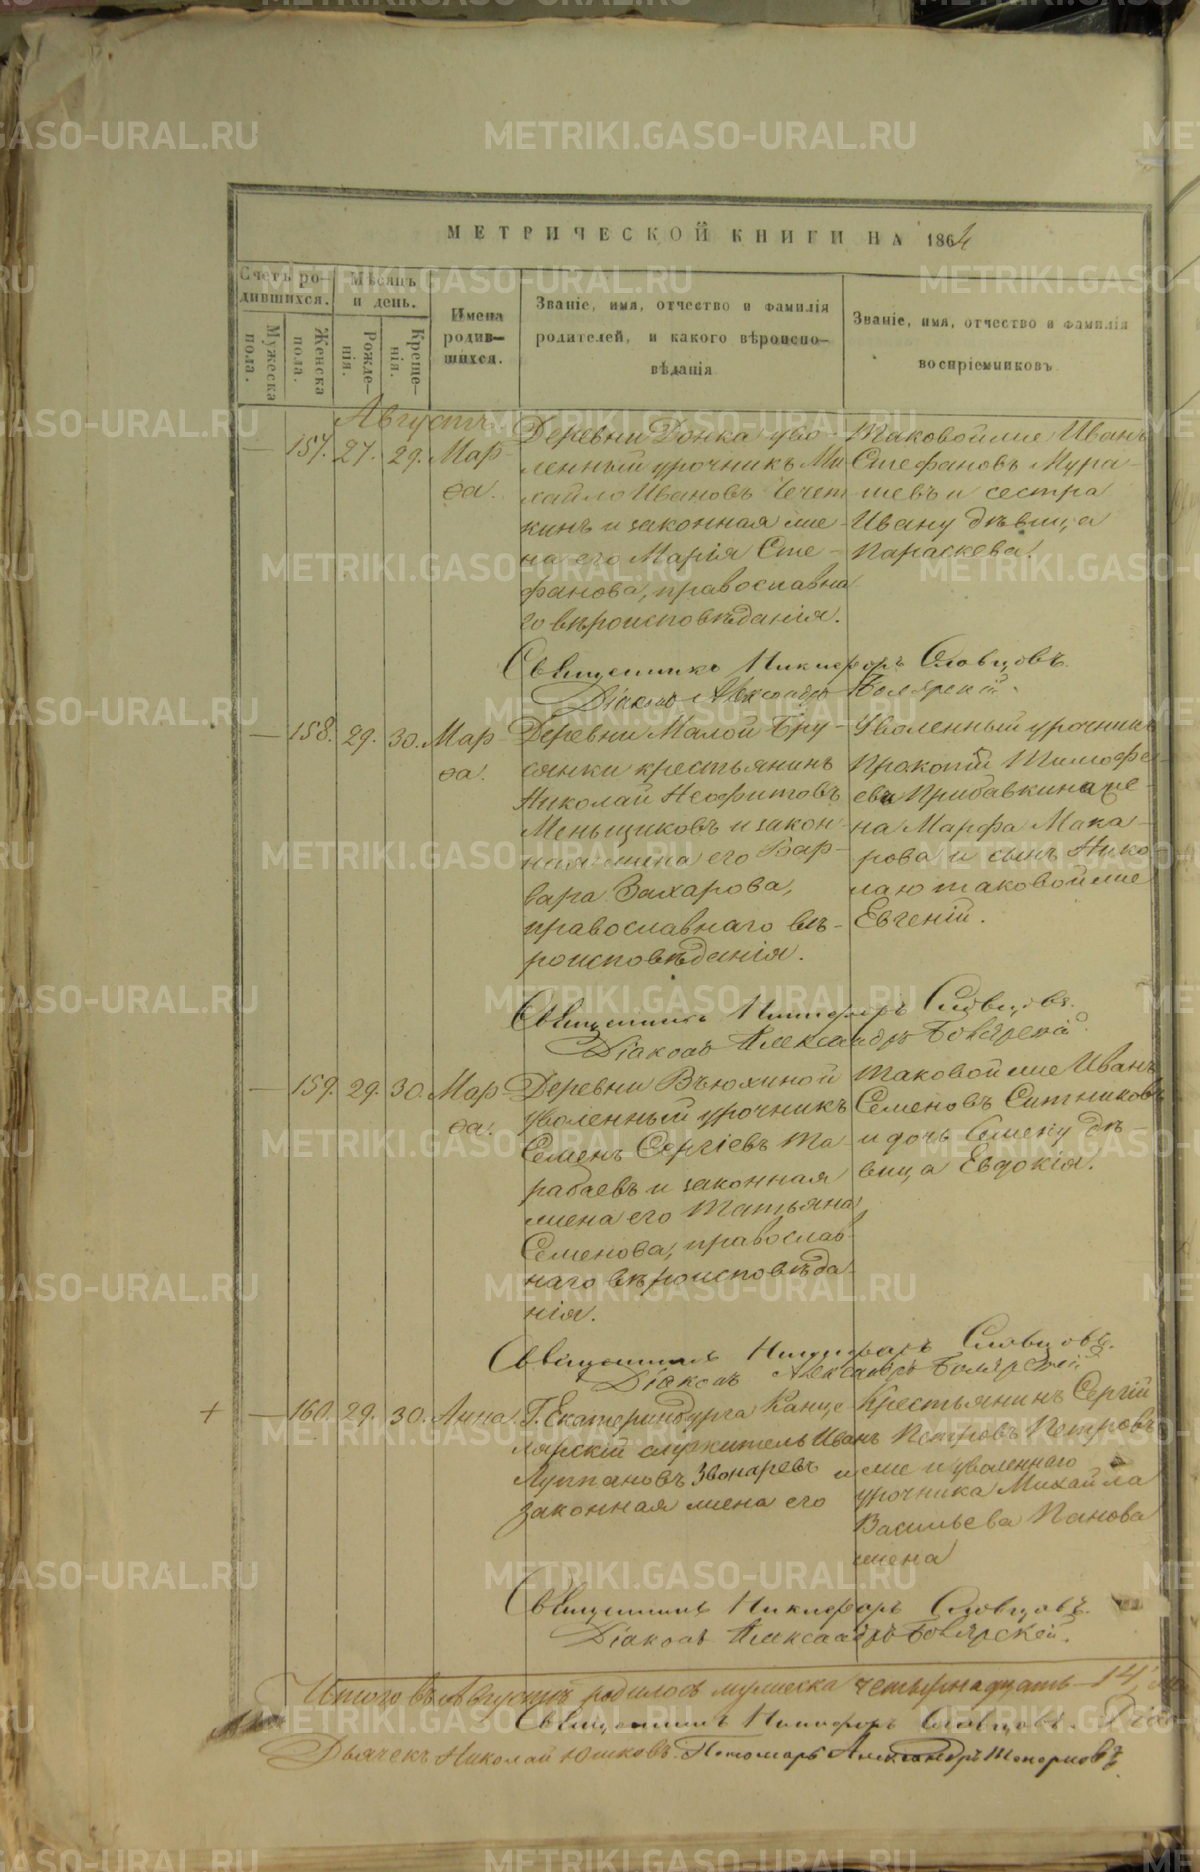 МЕТРИЧЕСКОЙ КНИГИ НА 1864
Счетъ ро-
дившихся.
Мужеска
пола.
Женска
пола.
Мѣсяцъ
и день.
Рожде-
нія.
Креще-
нія.
Имена
родив-
шихся.
Званіе, имя, отчество и фамилія
родителей, и какого вѣроиспо-
вѣданія
Званіе, имя, отчество и фамилія
воспріемниковъ
Августъ
— 157. 27. 29. Мар-
ѳа.
Деревни Донка уво-
ленный урочникъ Ми
хайло Ивановъ Чечет
кинъ и законная же-
на его Марія Сте-
фанова, православна
го вѣроисповѣданія.
Таковой же Иванъ
Стефановъ Мура-
шевъ и сестра
Ивану дѣвица
Параскева.
Священникъ Никифоръ Словцовъ.
Діаконъ Александръ Боярскій
— 158. 29. 30. Мар-
ѳа.
Деревни Малой Бру-
сянки крестьянинъ
Николай Неофитовъ
Меньщиковъ и закон-
ная жена его Вар-
вара Захарова,
православнаго вѣ-
роисповѣданія.
Уволенный урочникъ
Прокопій Тимофе-
ева Прибавкина же-
на Марфа Мака-
рова и сынъ Нико
лаю таковой же
Евгеній.
Священникъ Никифоръ Словцовъ.
Діаконъ Александръ Боярскій
— 159. 29. 30. Мар-
ѳа.
Деревни Вьюхиной
уволенный урочникъ
Семенъ Сергіевъ Та
рабаевъ и законная
жена его Татьяна
Семенова, православ-
наго вѣроисповѣда-
нія.
Таковой же Иванъ
Семеновъ Ситниковъ
и дочь Семену дѣ-
вица Евдокія.
Священникъ Никифоръ Словцовъ.
Діаконъ Александръ Боярскій
+ — 160. 29. 30. Анна
Г. Екатеринбурга Канце-
лярскій служитель Иванъ
Луппановъ Звонаревъ и
законная жена его
Крестьянинъ Сергій
Петровъ Петровъ
же и уволеннаго
урочника Михаила
Васильева Панова
жена
Священникъ Никифоръ Словцовъ.
Діаконъ Александръ Боярскій.
Итого въ Августѣ родилось мужеска четырнадцать—14,
Священникъ Никифоръ Словцовъ.
Дьячекъ Николай Юшковъ. Пономарь Александръ
METRIKI.GASO-URAL.RU